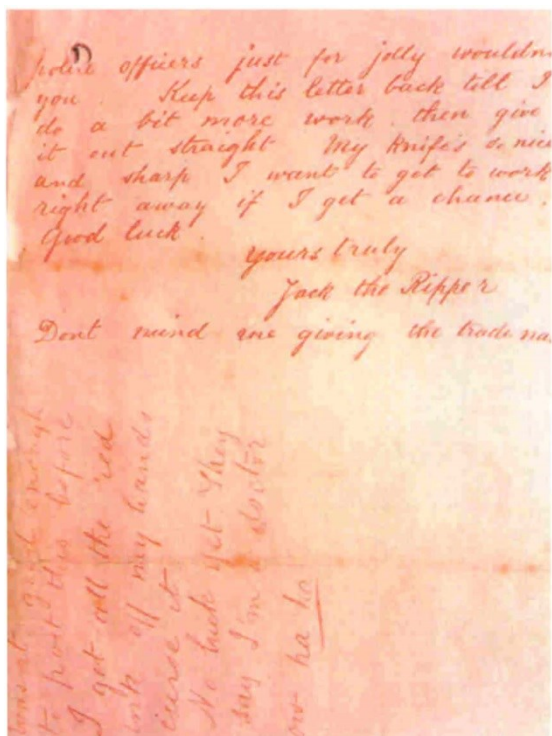 police officers just for jolly wouldn
you Keep this letter back till I
do a bit more work. then give
it out straight My knife's so nice
and sharp I want to get to work
right away if I get a chance.
Good luck.
yours truly
Jack the Ripper
Dont mind me giving the trade na
wasnt good enough
to post this before
I got all the red
ink off my hands
curse it
No luck yet. They
say I'm a doctor
now ha ha